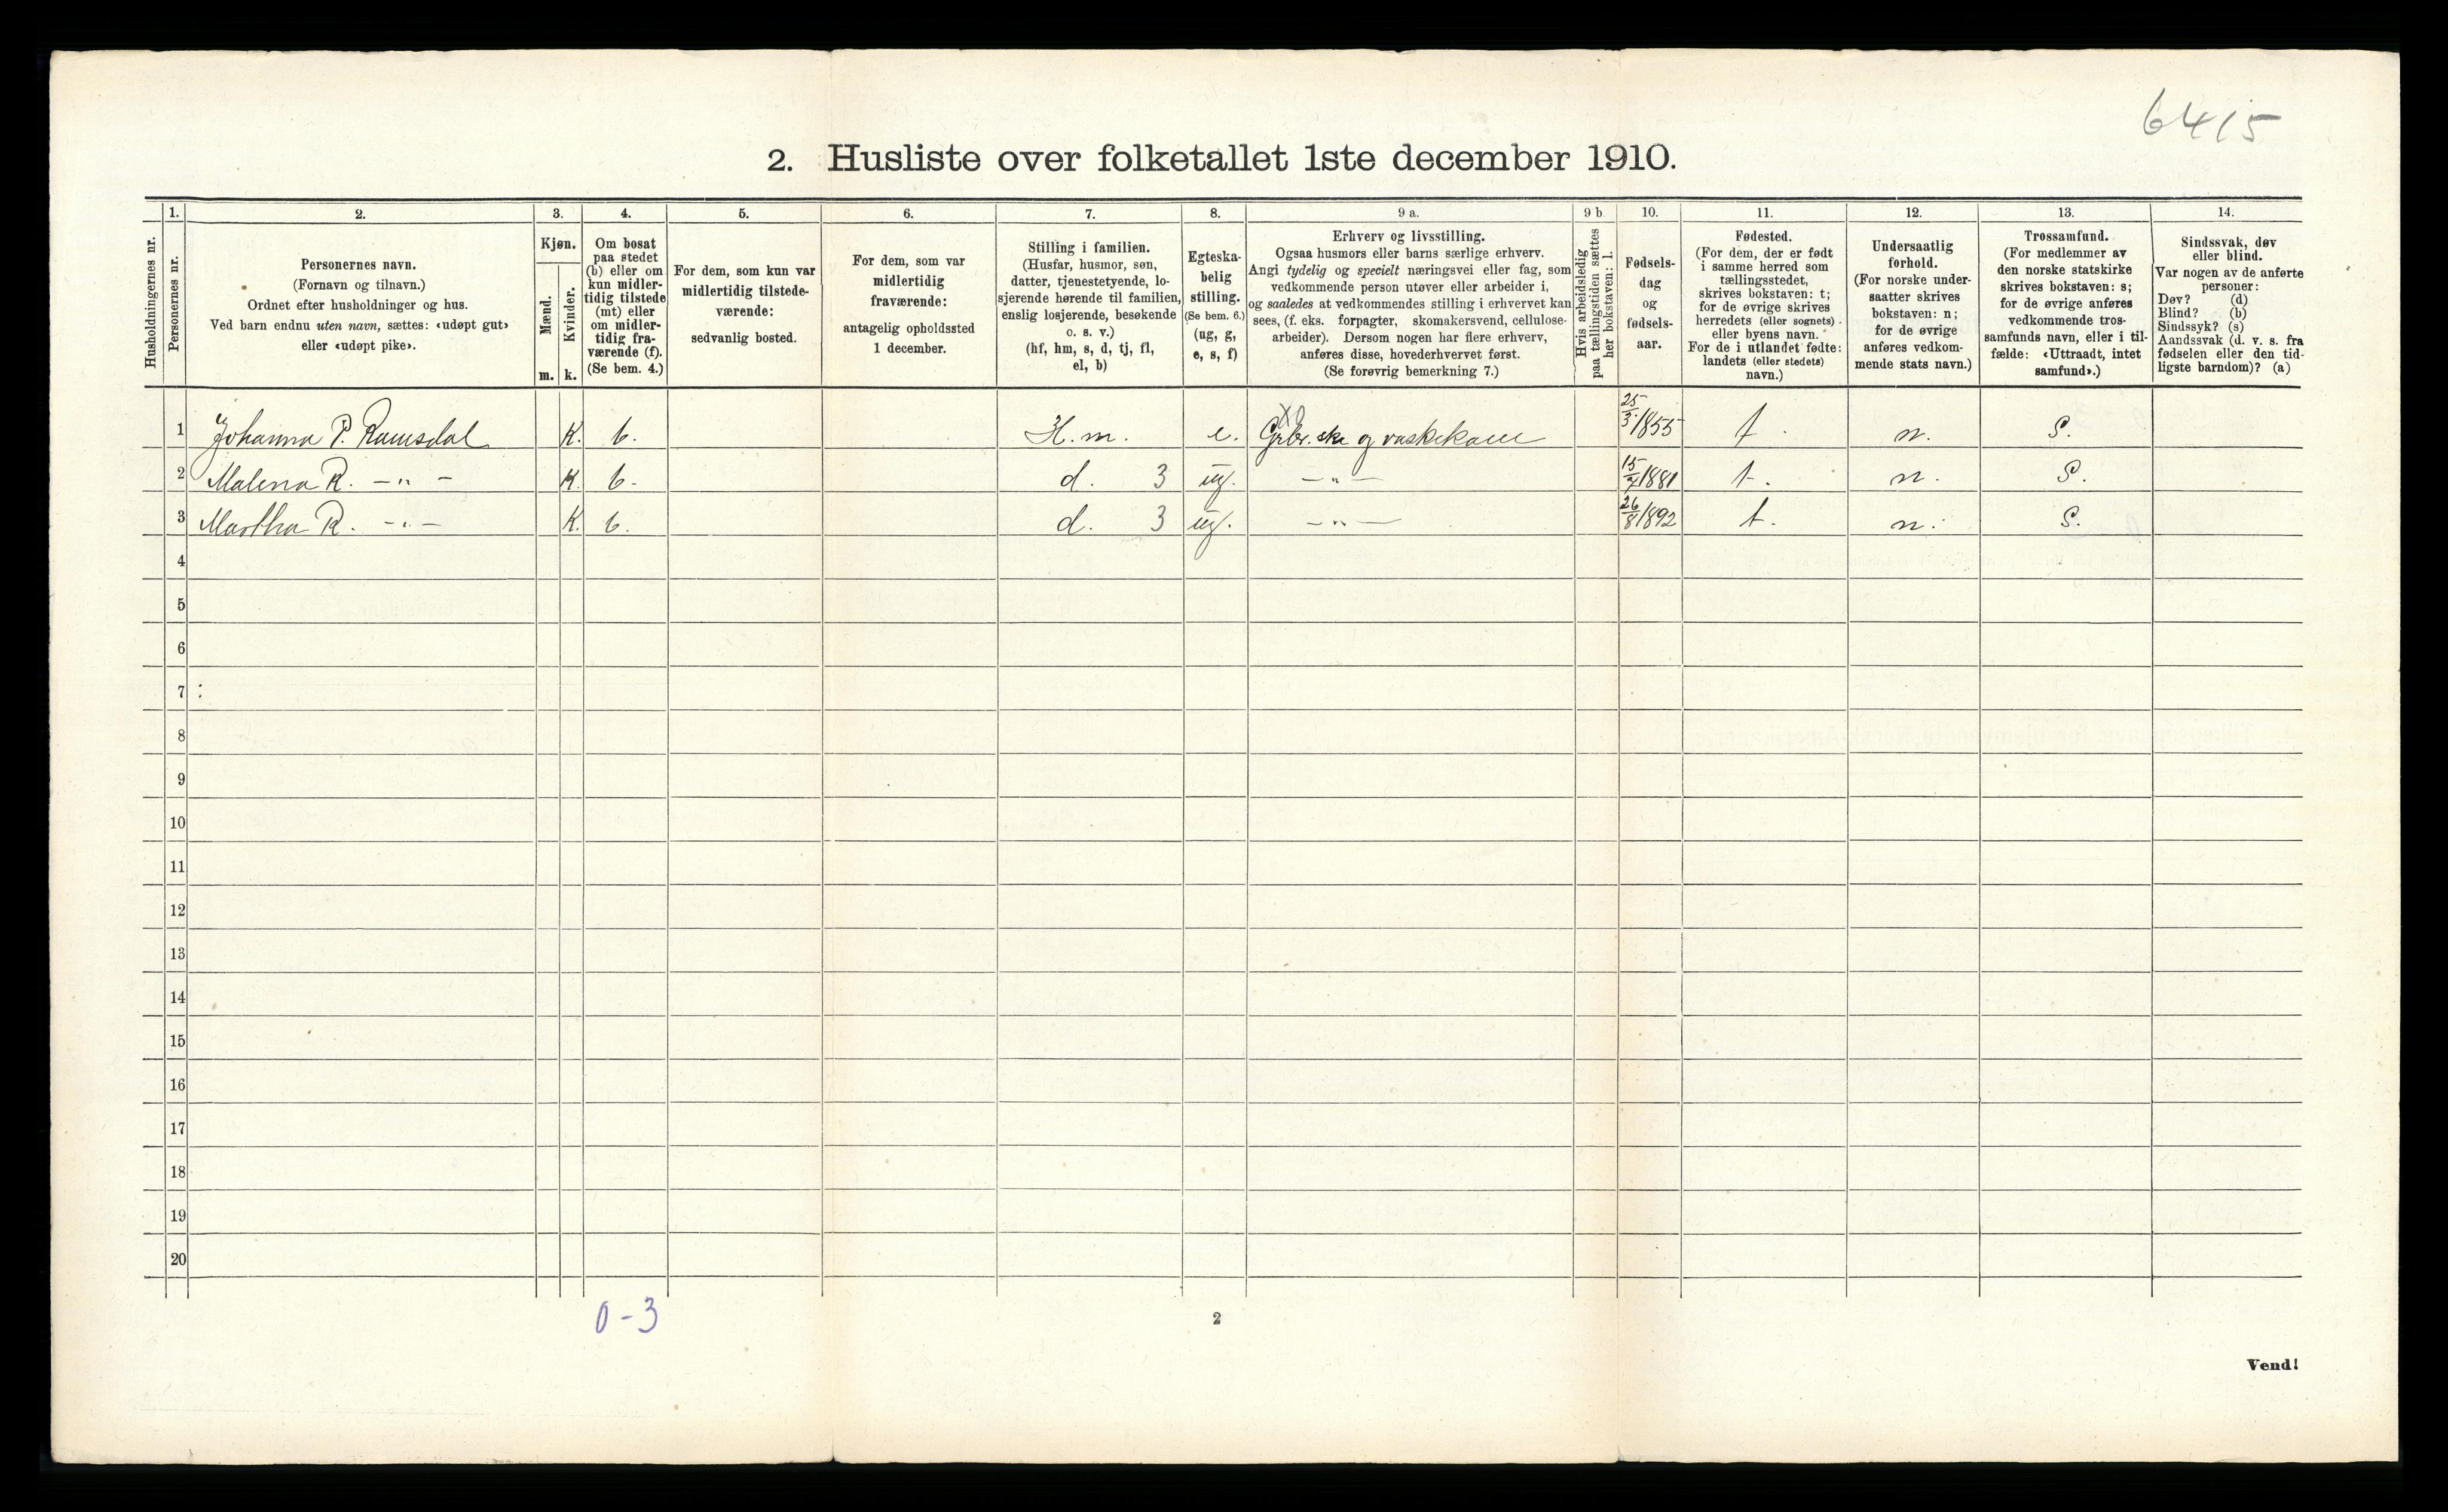 6415
2. Husliste over folketallet 1ste december 1910.
Husholdningernes nr.
1.
Personernes nr.
2.
Personernes navn.
(Fornavn og tilnavn.)
Ordnet efter husholdninger og hus.
Ved barn endnu uten navn, sættes: «udøpt gut»
eller «udøpt pike».
3.
Kjøn.
Mænd.
Kvinder.
m. k.
4.
Om bosat
paa stedet
(b) eller om
kun midler-
tidig tilstede
(mt) eller
om midler-
tidig fra-
værende (f).
(Se bem. 4.)
5.
For dem, som kun var
midlertidig tilstede-
værende:
sedvanlig bosted.
6.
For dem, som var
midlertidig
fraværende:
antagelig opholdssted
1 december.
7.
Stilling i familien.
(Husfar, husmor, søn,
datter, tjenestetyende, lo-
sjerende hørende til familien,
enslig losjerende, besøkende
o. s. v.)
(hf, hm, s, d, tj, fl,
el, b)
8.
Egteska-
belig
stilling.
(Se bem. 6.)
(ug, g,
e, s, f)
9 a.
Erhverv og livsstilling.
Ogsaa husmors eller barns særlige erhverv.
Angi tydelig og specielt næringsvei eller fag, som
vedkommende person utøver eller arbeider i,
og saaledes at vedkommendes stilling i erhvervet kan
sees, (f. eks. forpagter, skomakersvend, cellulose-
arbeider). Dersom nogen har flere erhverv,
anføres disse, hovederhvervet først.
(Se forøvrig bemerkning 7.)
9 b.
Hvis arbeidsledig
paa tællingstiden sættes
her bokstaven: l.
10.
Fødsels-
dag
og
fødsels-
aar.
11.
Fødested.
(For dem, der er født
i samme herred som
tællingsstedet,
skrives bokstaven: t;
for de øvrige skrives
herredets (eller sognets)
eller byens navn.
For de i utlandet fødte:
landets (eller stedets)
navn.)
12.
Undersaatlig
forhold.
(For norske under-
saatter skrives
bokstaven: n;
for de øvrige
anføres vedkom-
mende stats navn.)
13.
Trossamfund.
(For medlemmer av
den norske statskirke
skrives bokstaven: s;
for de øvrige anføres
vedkommende tros-
samfunds navn, eller i til-
fælde: «Uttraadt, intet
samfund».)
14.
Sindssvak, døv
eller blind.
Var nogen av de anførte
personer:
Døv? (d)
Blind? (b)
Sindssyk? (s)
Aandssvak (d. v. s. fra
fødselen eller den tid-
ligste barndom)? (a)
1 Johanna P. Ramsdal K. b. H.m. e. Grbr.ske og vaskekone 25/3 1855 t. n. S.
2 Malena R. -"- K. b. d. 3 ug. -"- 15/7 1881 t. n. S.
3 Martha R. -"- K. b. d. 3 ug. -"- 26/8 1892 t. n. S.
4
5
6
7
8
9
10
11
12
13
14
15
16
17
18
19
20
0-3
2
Vend!